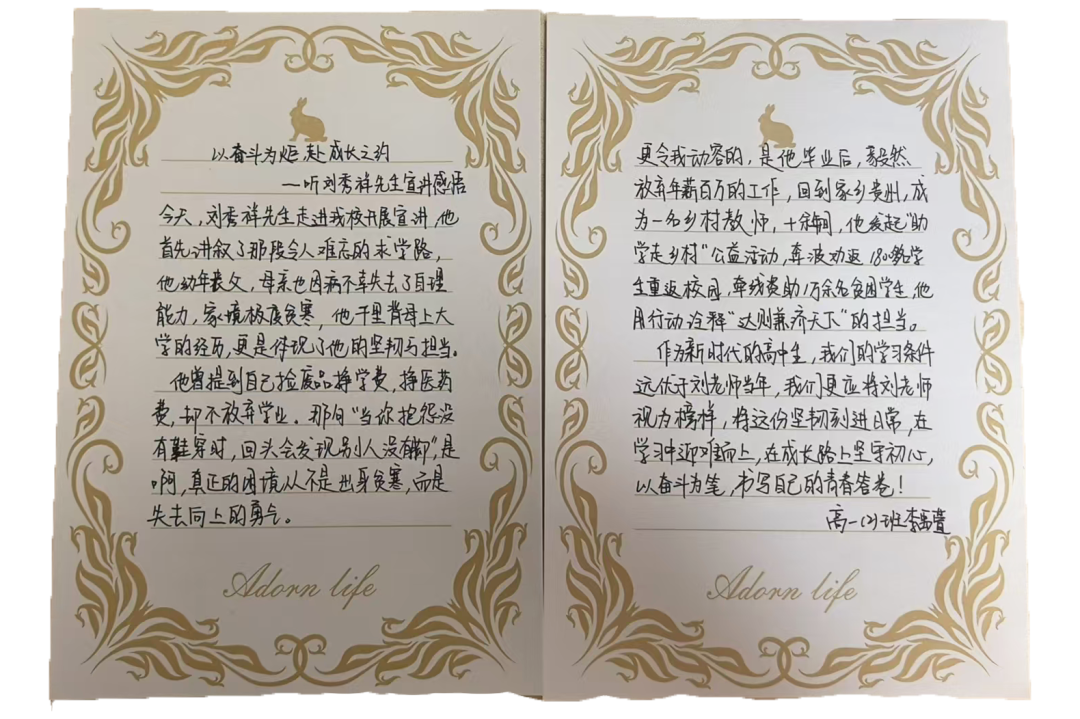 以奋斗为炬,赴成长之约
—听刘秀祥先生宣讲感悟
今天,刘秀祥先生走进我校开展宣讲,他
首先讲叙了那段令人难忘的求学路,
他幼年丧父,母亲也因病不幸失去了自理
能力,家境极度贫寒,他千里背母上大
学的经历,更是体现了他的坚韧与担当。
他曾提到自己捡废品挣学费,挣医药
费,却不放弃学业。那句“当你抱怨没
有鞋穿时,回头会发现别人没有脚”,是
啊,真正的困境从不是出身贫寒,而是
失去向上的勇气。
Adorn life
更令我动容的,是他毕业后,毅然
放弃年薪百万的工作,回到家乡贵州,成
为一名乡村教师,十余年间,他发起“助
学走乡村”公益活动,奔波劝返1800多名学
生重返校园,牵线资助1万余名贫困学生,他
用行动诠释“达则兼济天下”的担当。
作为新时代的高中生,我们的学习条件
远优于刘老师当年,我们更应将刘老师
视为榜样,将这份坚韧刻进日常,在
学习中迎难而上,在成长路上坚守初心,
以奋斗为笔,书写自己的青春答卷!
高一(2)班李萱
Adorn life